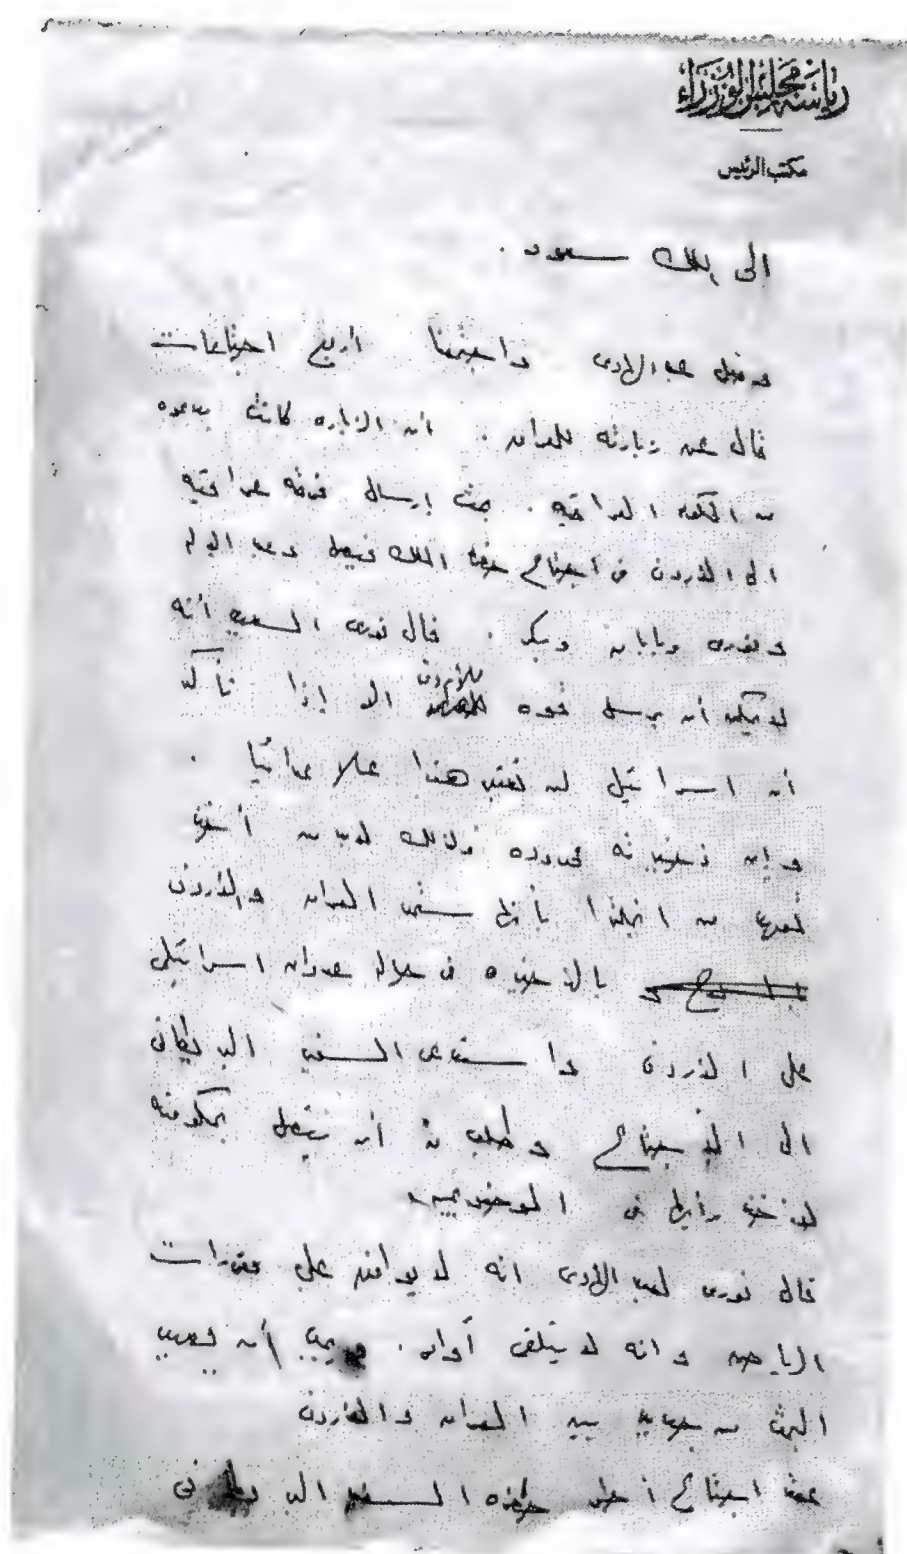 رياسة مجلس الوزراء
مكتب الرئيس
الى الملك سعود .
وصل عبد الهادى واجتمعنا أربع اجتماعات
قال عن زيارته للعراق . أن الزياره كانت بدعوه
من الحكومه العراقيه . بحث إرسال فرقه عراقيه
الى الأردن فى اجتماع حضره الملك فيصل وعبد الإله
ونورى وبابان وبكر . قال نورى السعيد أنه
لا يمكن أن يرسل قوه للأردن الا إذا تأكد
أن اسرائيل لن تعتبر هذا عملا عدائيا .
وإن ذخيرته محدوده ولذلك لابد من
من انجلترا بأنها ستمد العراق والأردن
بالذخيره فى حالة عدوان اسرائيلى
على الأردن واستدعى السفير البريطانى
الى الاجتماع وطلب منه أن يتصل بحكومته
لأخذ رأيها فى الموضوعين
قال نورى لعبد الهادى انه لا يوافق على مقررات
الرياض وانه لا يتلقى أوامر . ويجب أن نعيد
البحث من جديد بين العراق والأردن
عقد اجتماع أخر حضره السفير البريطانى